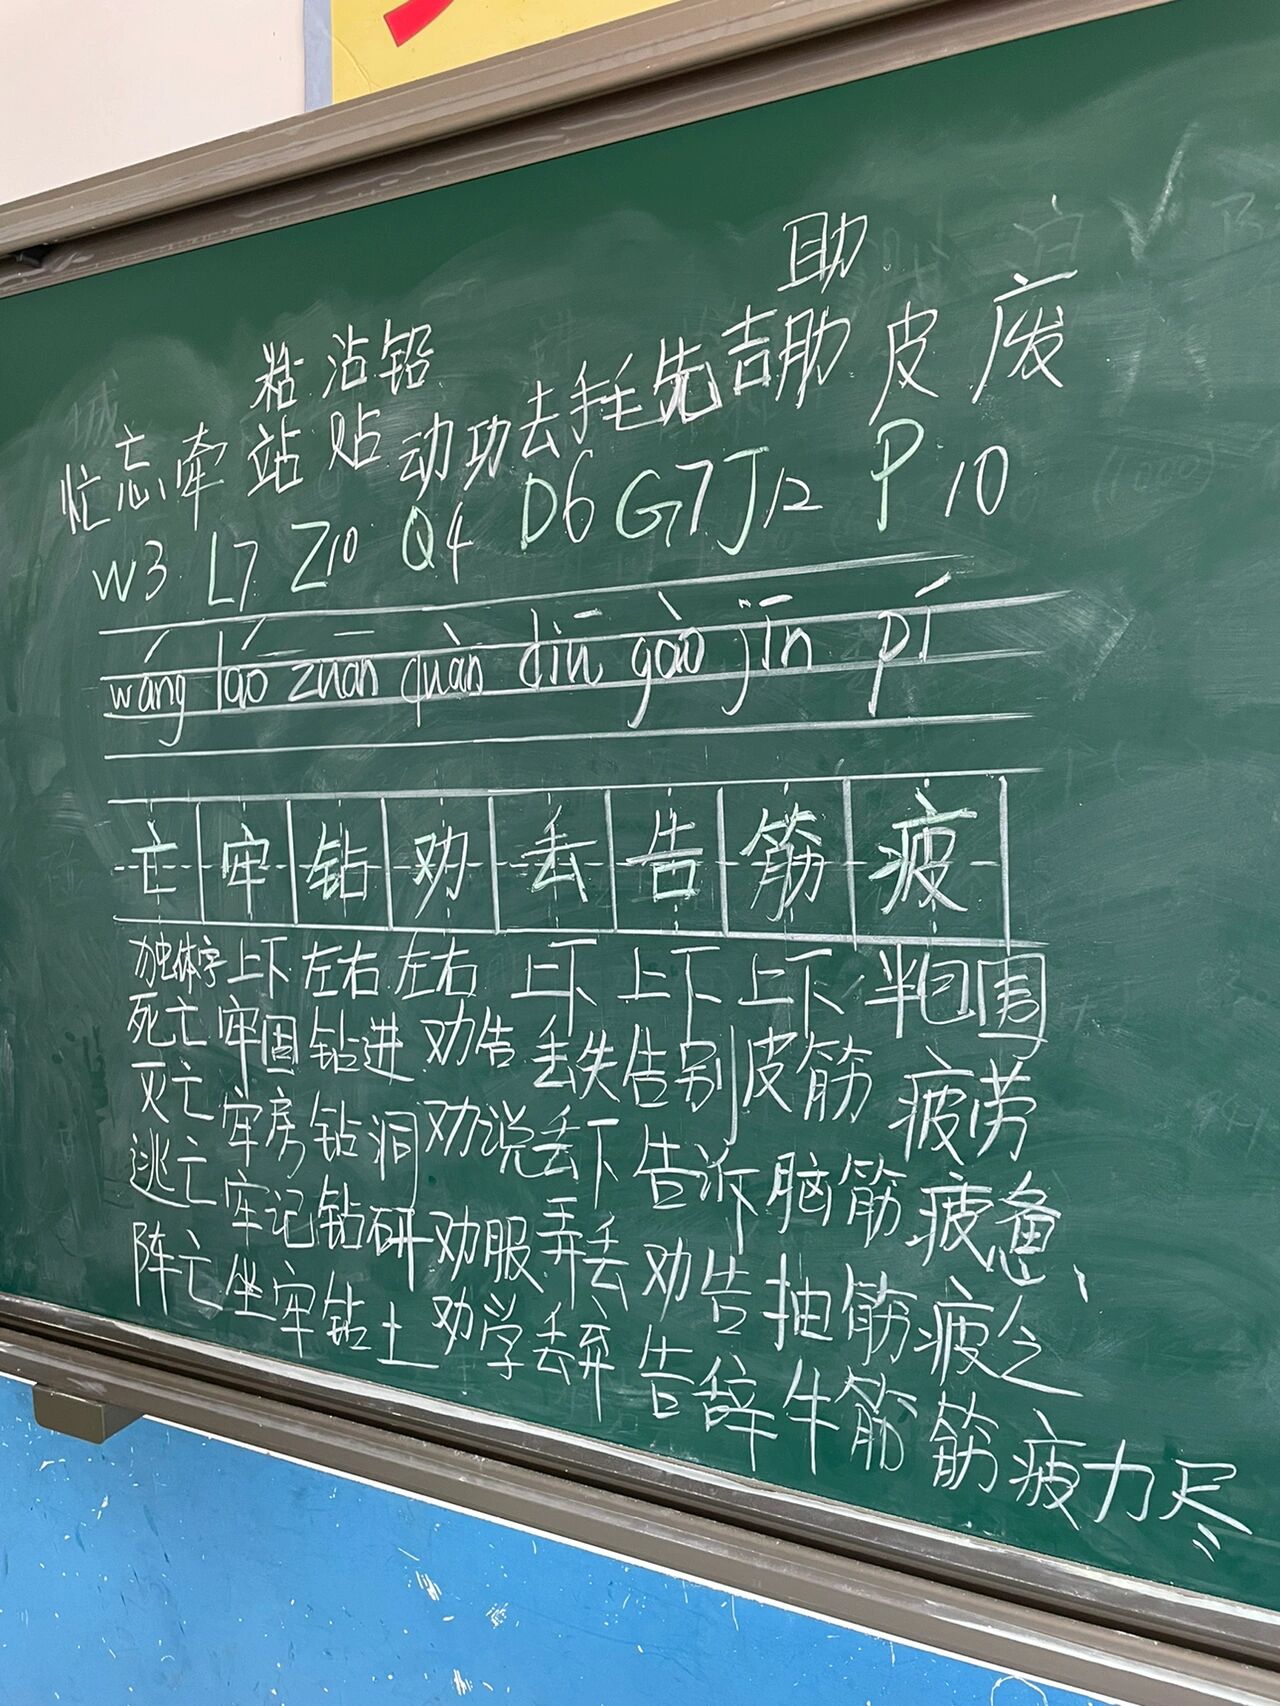 助
粘 沾 铅
忙 忘 牵 站 贴 动 功 去 手 毛 先 吉 肋 皮 废
W3 L7 Z10 Q4 D6 G7 J12 P 10
wáng láo zuān quàn diū gào jīn pí
亡 牢 钻 劝 丢 告 筋 疲
独体字 上下 左右 左右 上下 上下 上下 半包围
死亡 牢固 钻进 劝告 丢失 告别 皮筋 疲劳
灭亡 牢房 钻洞 劝说 丢下 告诉 脑筋 疲惫
逃亡 牢记 钻研 劝服 弄丢 劝告 抽筋 疲乏
阵亡 坐牢 钻土 劝学 丢弃 告辞 牛筋 筋疲力尽